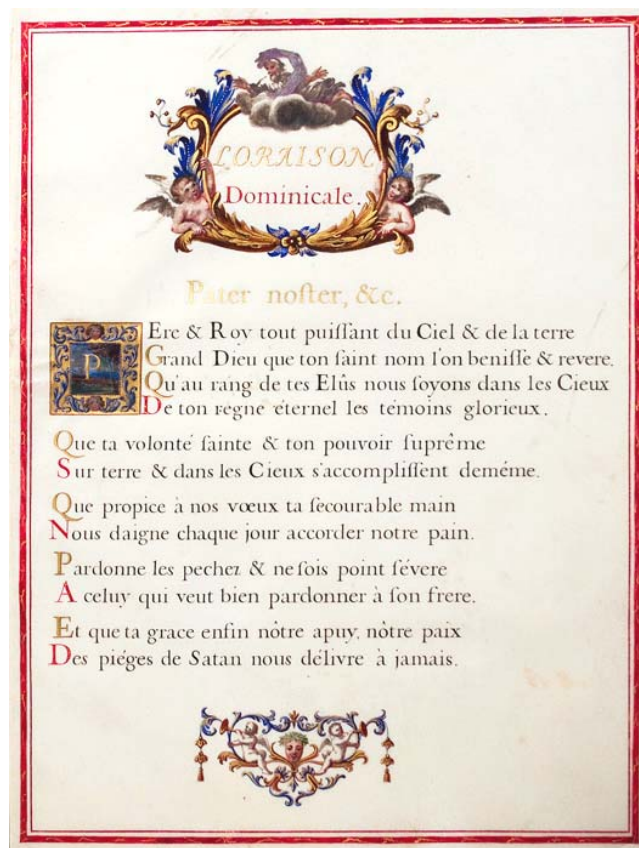 LORAISON
Dominicale.
Pater noſter, &c.
PEre & Roy tout puiſſant du Ciel & de la terre
Grand Dieu que ton ſaint nom l'on beniſſe & revere.
Qu'au rang de tes Elûs nous ſoyons dans les Cieux
De ton regne éternel les témoins glorieux.
Que ta volonté ſainte & ton pouvoir ſuprême
Sur terre & dans les Cieux s'accompliſſent deméme.
Que propice à nos vœux ta ſécourable main
Nous daigne chaque jour accorder notre pain.
Pardonne les pechez & ne ſois point ſévere
A celuy qui veut bien pardonner à ſon frere.
Et que ta grace enfin nôtre apuy, nôtre paix
Des piéges de Satan nous délivre à jamais.